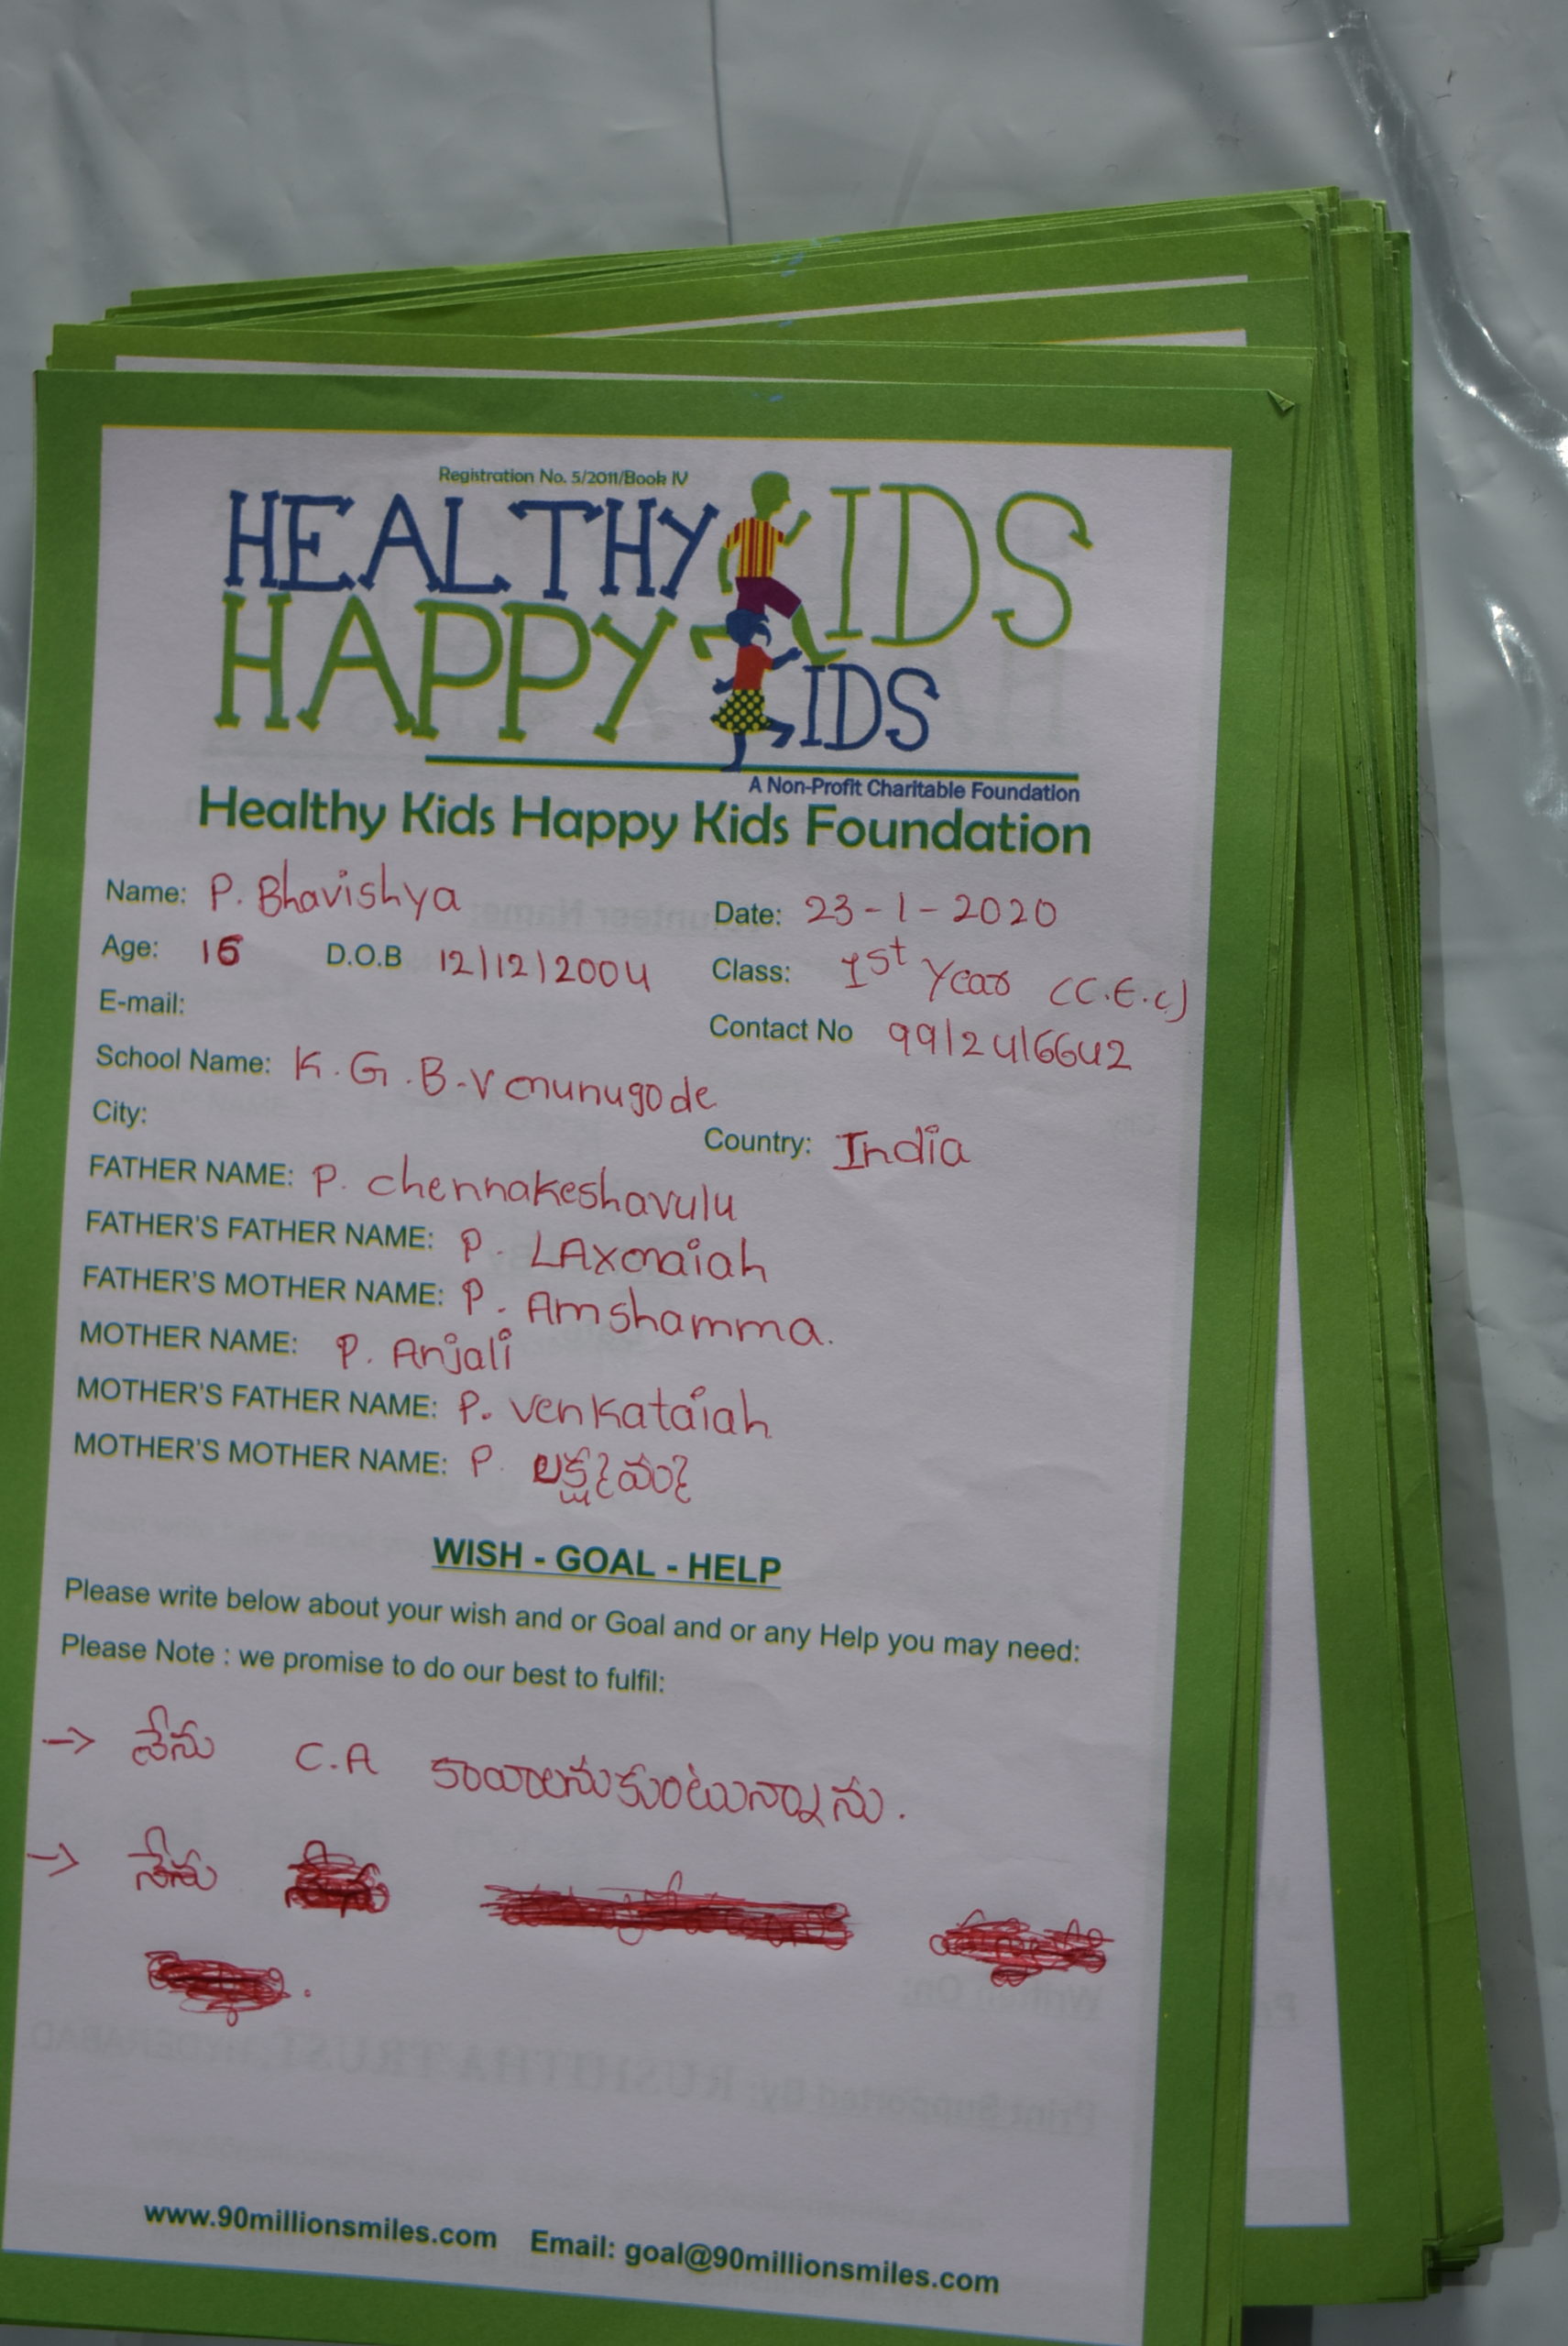 Registration No. 5/2011/Book IV
HEALTHY KIDS
HAPPY KIDS
A Non-Profit Charitable Foundation
Healthy Kids Happy Kids Foundation
Name: P. Bhavishya Date: 23-1-2020
Age: 16 D.O.B 12/12/2004 Class: 1st Year (C.E.C)
E-mail: Contact No 9912416642
School Name: K.G.B.V munugode
City: Country: India
FATHER NAME: P. chennakeshavulu
FATHER'S FATHER NAME: P. LAxmaiah
FATHER'S MOTHER NAME: P. Amshamma.
MOTHER NAME: P. Anjali
MOTHER'S FATHER NAME: P. venkataiah
MOTHER'S MOTHER NAME: P. లక్ష్మమ్మ
WISH - GOAL - HELP
Please write below about your wish and or Goal and or any Help you may need:
Please Note : we promise to do our best to fulfil:
→ నేను C.A కావాలనుకుంటున్నాను.
→ నేను
www.90millionsmiles.com Email: goal@90millionsmiles.com